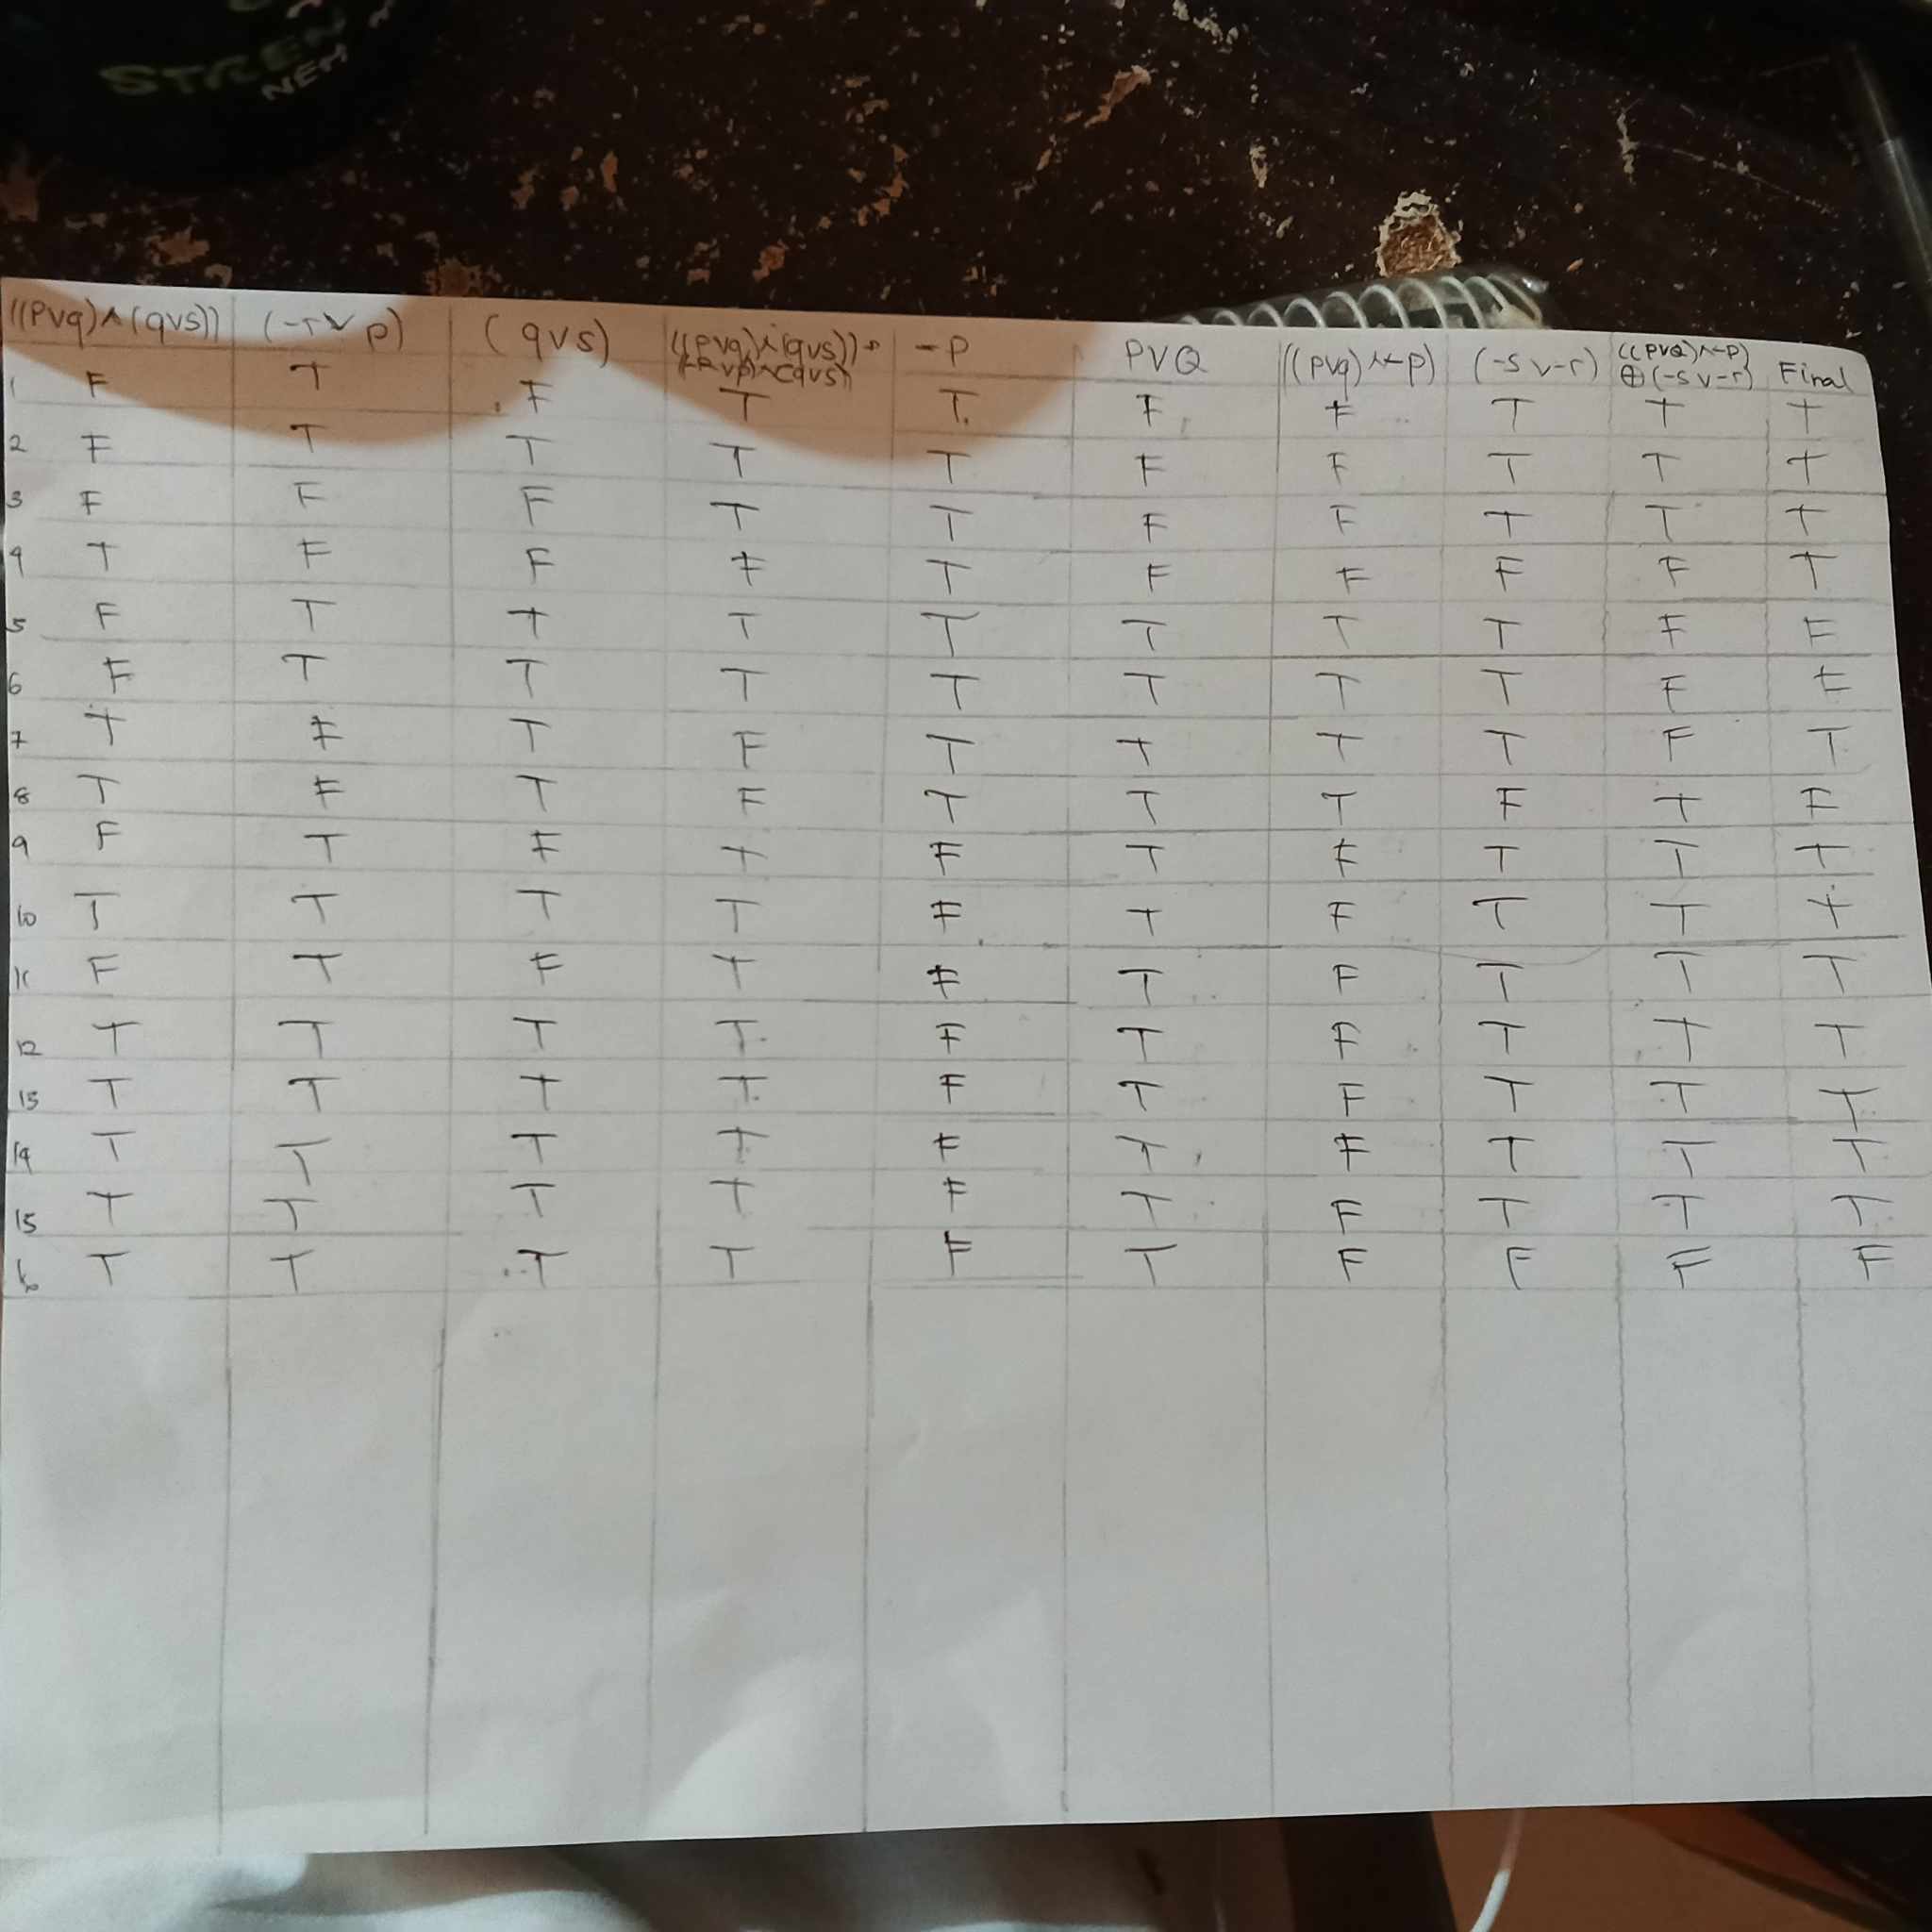 STREN
NEM
((PVq)∧(qVS)) (-r∨p) (qVS) ((pVq)∧(qVS))→ -P PVQ ((pVq)∧-p) (-S∨-r) ((PVQ)∧-p) Final
∧(qvs)) ⊕(-S∨-r)
1 F T F T T F F T T T
2 F T T T T F F T T T
3 F F F T T F F T T T
4 T F F F T F F F F T
5 F T T T T T T T F F
6 F T T T T T T T F F
7 T F T F T T T T F T
8 T F T F T T T F T F
9 F T F T F T F T T T
10 T T T T F T F T T T
11 F T F T F T F T T T
12 T T T T F T F T T T
13 T T T T F T F T T T
14 T T T T F T F T T T
15 T T T T F T F T T T
16 T T T T F T F F F F